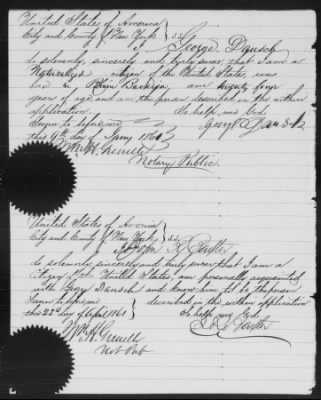 United States of America
City and County of New York } SS
I George Dansch
do solemnly, sincerely and truly swear that I am a
Naturalized citizen of the United States, was
born in Rhein Bavaria, am twenty four
years of age and am the person described in the within
application. So help me God
Sworn to before me George Dansch
this 9th day of 1861
Wm H. Gunell
Notary Public
United States of America
City and County of New York } SS
I
do solemnly, sincerely and truly swear that I am a
citizen of the United States, am personally acquainted
with Geory Dansch and know him to be the person
Sworn to before me described in the within application
this 22d day of April 1861 So help me God.
Wm H. Gunell
Not Pub